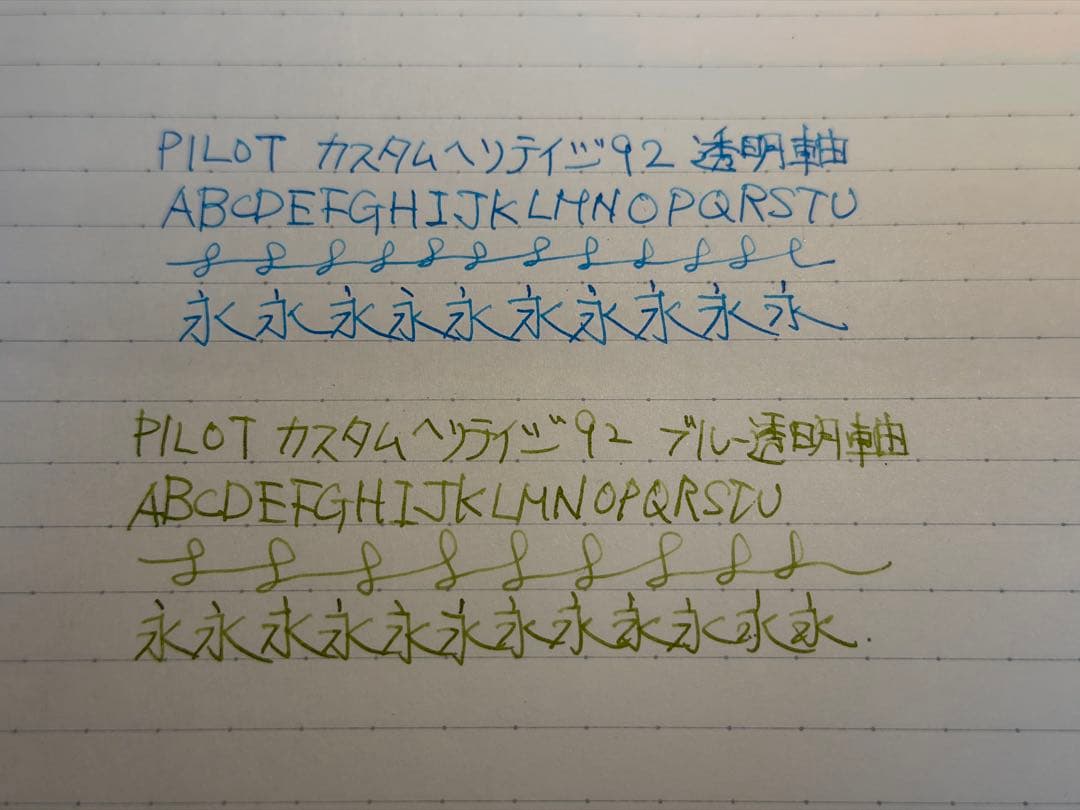 PILOT カスタムヘリテイジ92 透明軸
ABCDEFGHIJKLMNOPQRSTU
永永永永永永永永永永
PILOT カスタムヘリテイジ92 ブルー透明軸
ABCDEFGHIJKLMNOPQRSTU
永永永永永永永永永永永永